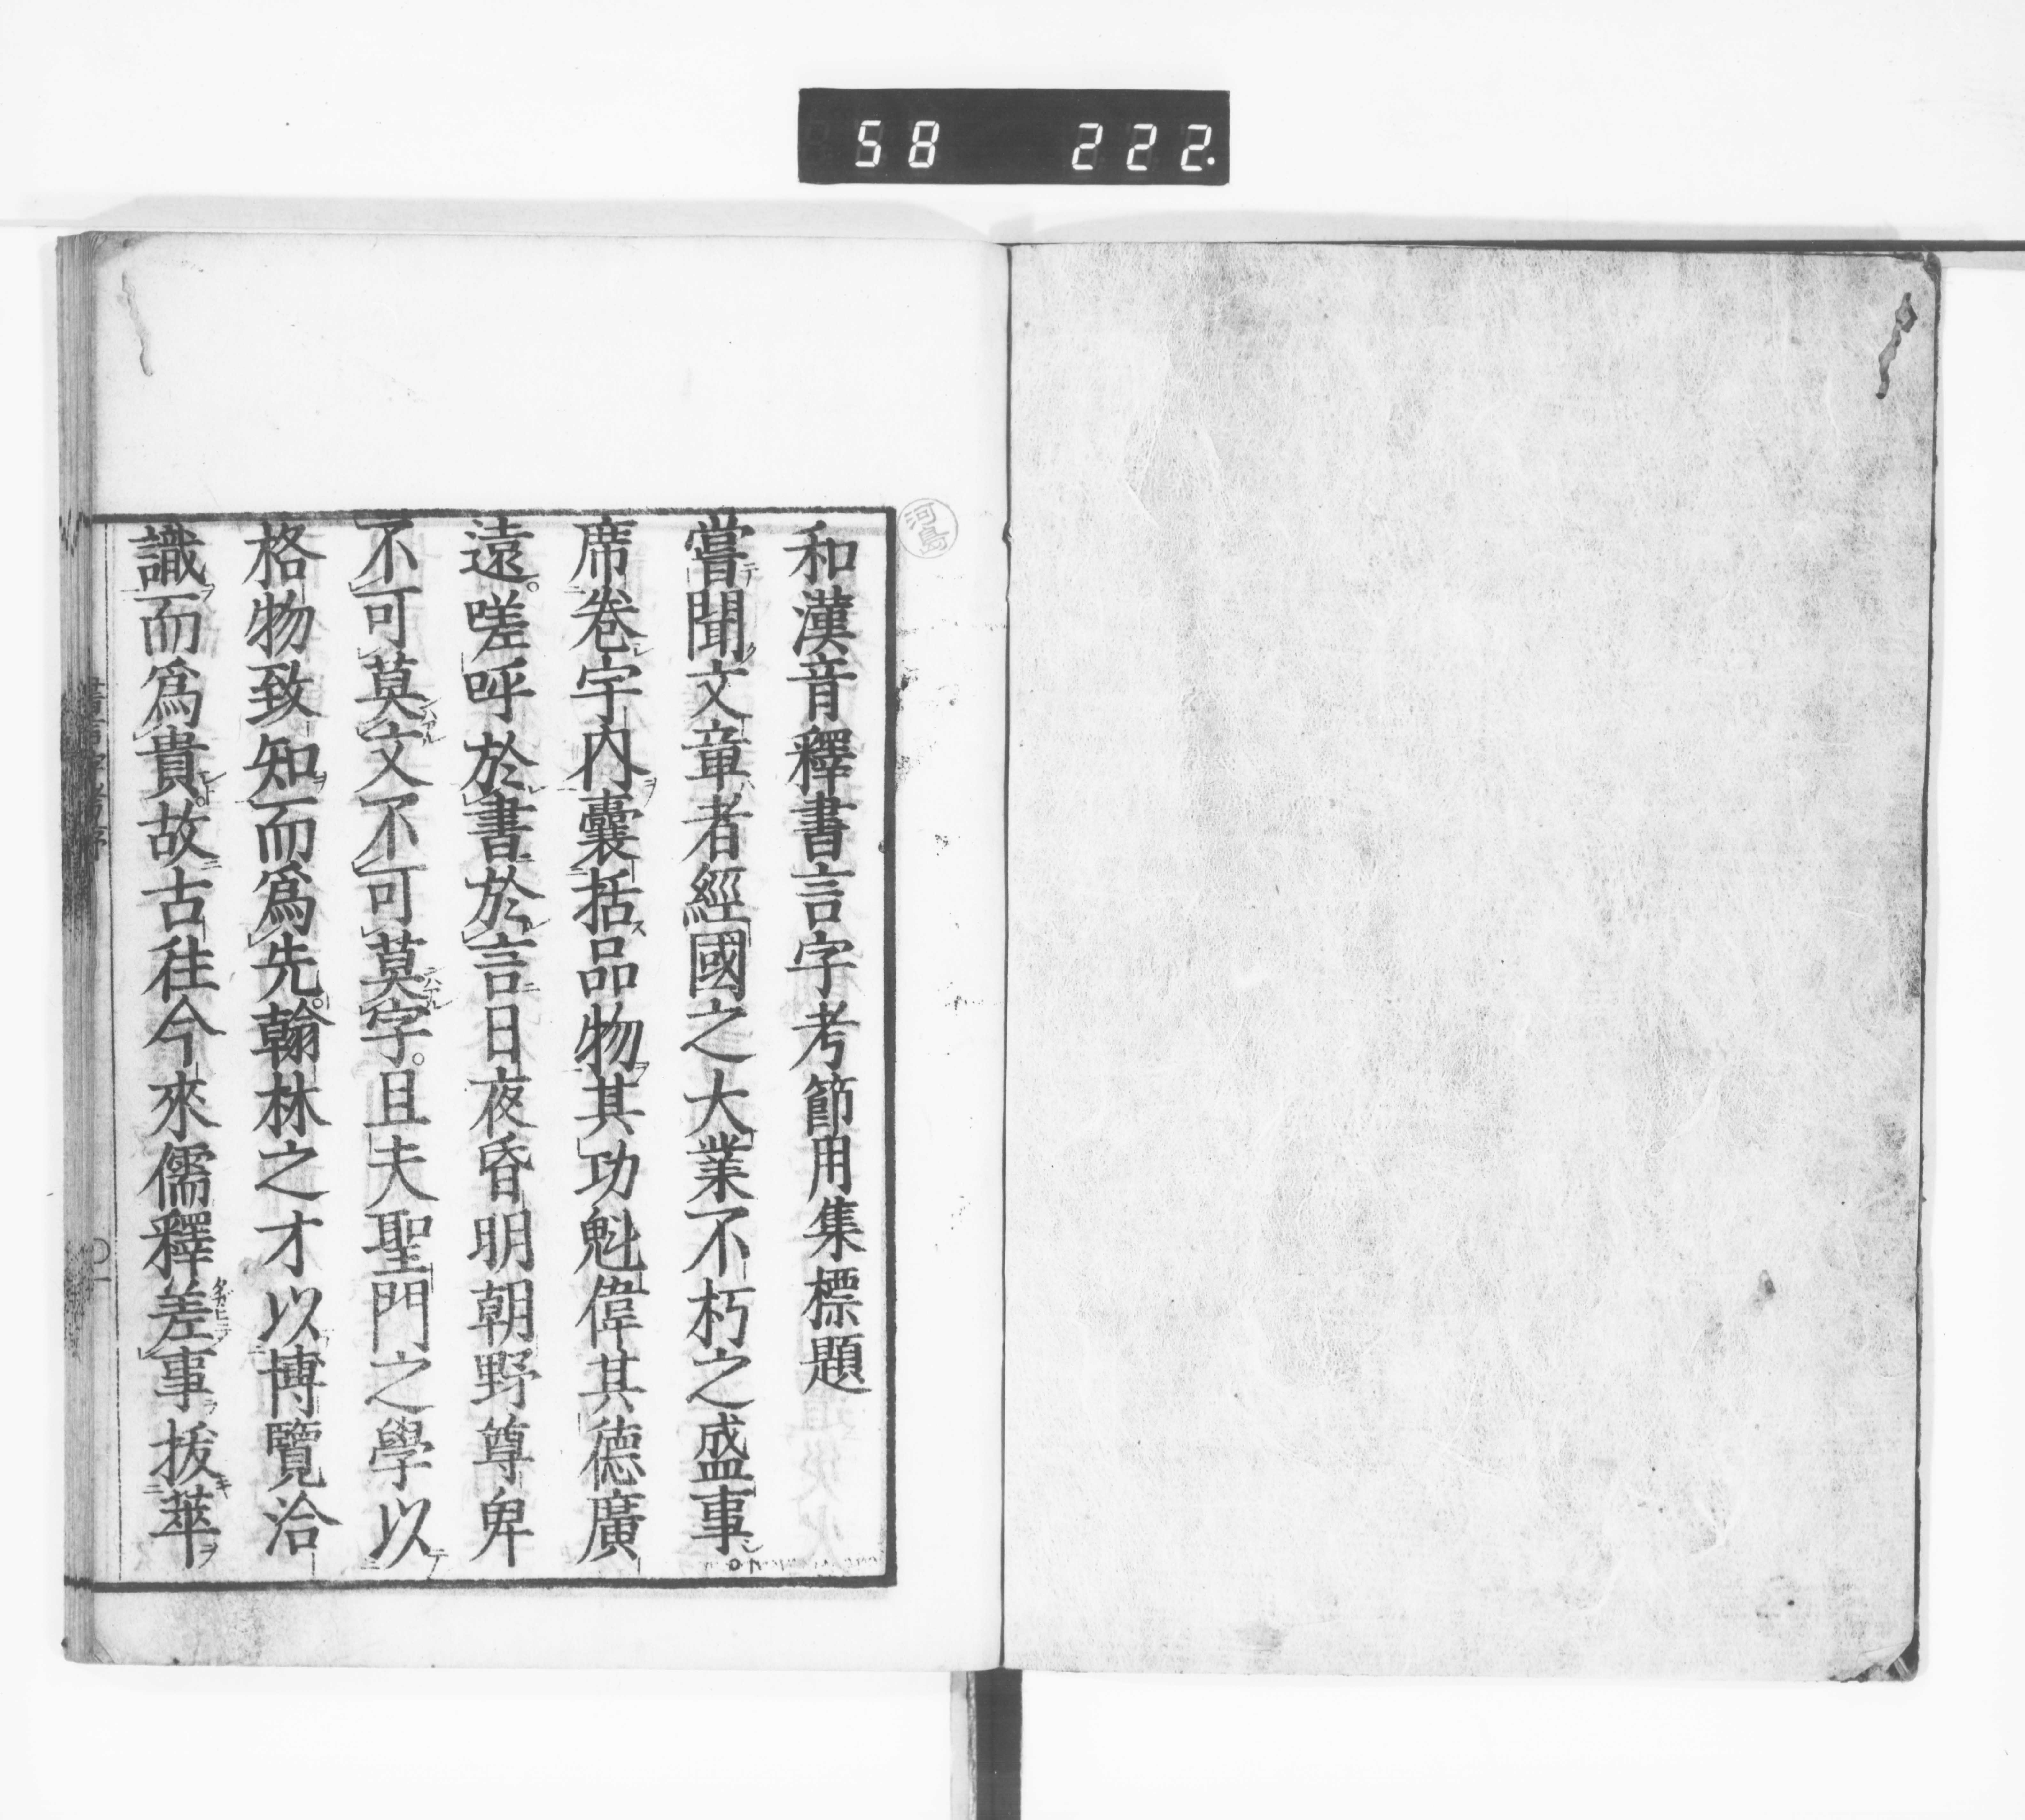 58 222.
河島
和漢音釋書言字考節用集標題
嘗聞文章者經國之大業不朽之盛事
席卷宇内囊括品物其功魁偉其德廣
遠。嗟呼於書於言日夜昏明朝野尊卑
不可莫文不可莫字。且夫聖門之學以
格物致知而爲先。翰林之才以博覽洽
識而爲貴。故古往今來儒釋差事拔萃